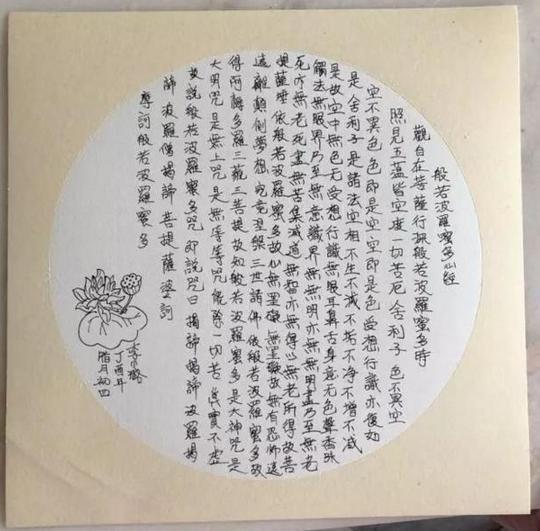 般若波羅蜜多心經
觀自在菩薩行深般若波羅蜜多時
照見五蘊皆空度一切苦厄舍利子色不異空
空不異色色即是空空即是色受想行識亦復如
是舍利子是諸法空相不生不滅不垢不净不增不減
是故空中無色无受想行識無眼耳鼻舌身意无色聲香味
觸法無眼界乃至無意識界無無明亦無無明盡乃至無老
死亦無老死盡無苦集滅道無智亦無得以無所得故菩
提薩埵依般若波羅蜜多故心無罣礙無罣礙故無有恐怖遠
遠離顛倒夢想究竟涅槃三世諸佛依般若波羅蜜多故
得阿耨多羅三藐三菩提故知般若波羅蜜多是大神咒是
大明咒是無上咒是無等等咒能除一切苦真實不虛
故說般若波羅蜜多咒即說咒曰揭諦揭諦波羅揭
諦波羅僧揭諦菩提薩婆訶
摩訶般若波羅蜜多
丁酉年
臘月初四